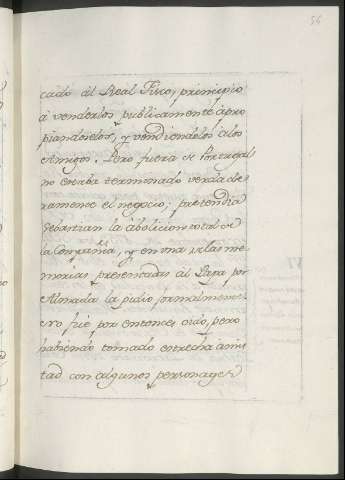 54
cado al Real Fisco, principio
à venderlos publicamente apro
piandoselos, y vendiendolos a los
Amigos. Pero fuera de Portugal
no estaba terminado verdade
ramente el negocio; pretendia
Sebastian la abolicion total de
la Compañia, y en una de las me
morias, presentadas al Papa por
Almada la pidio formalmente
no fue por entonces oido, pero
habiendo tomado estrecha amis
tad con algunos personages